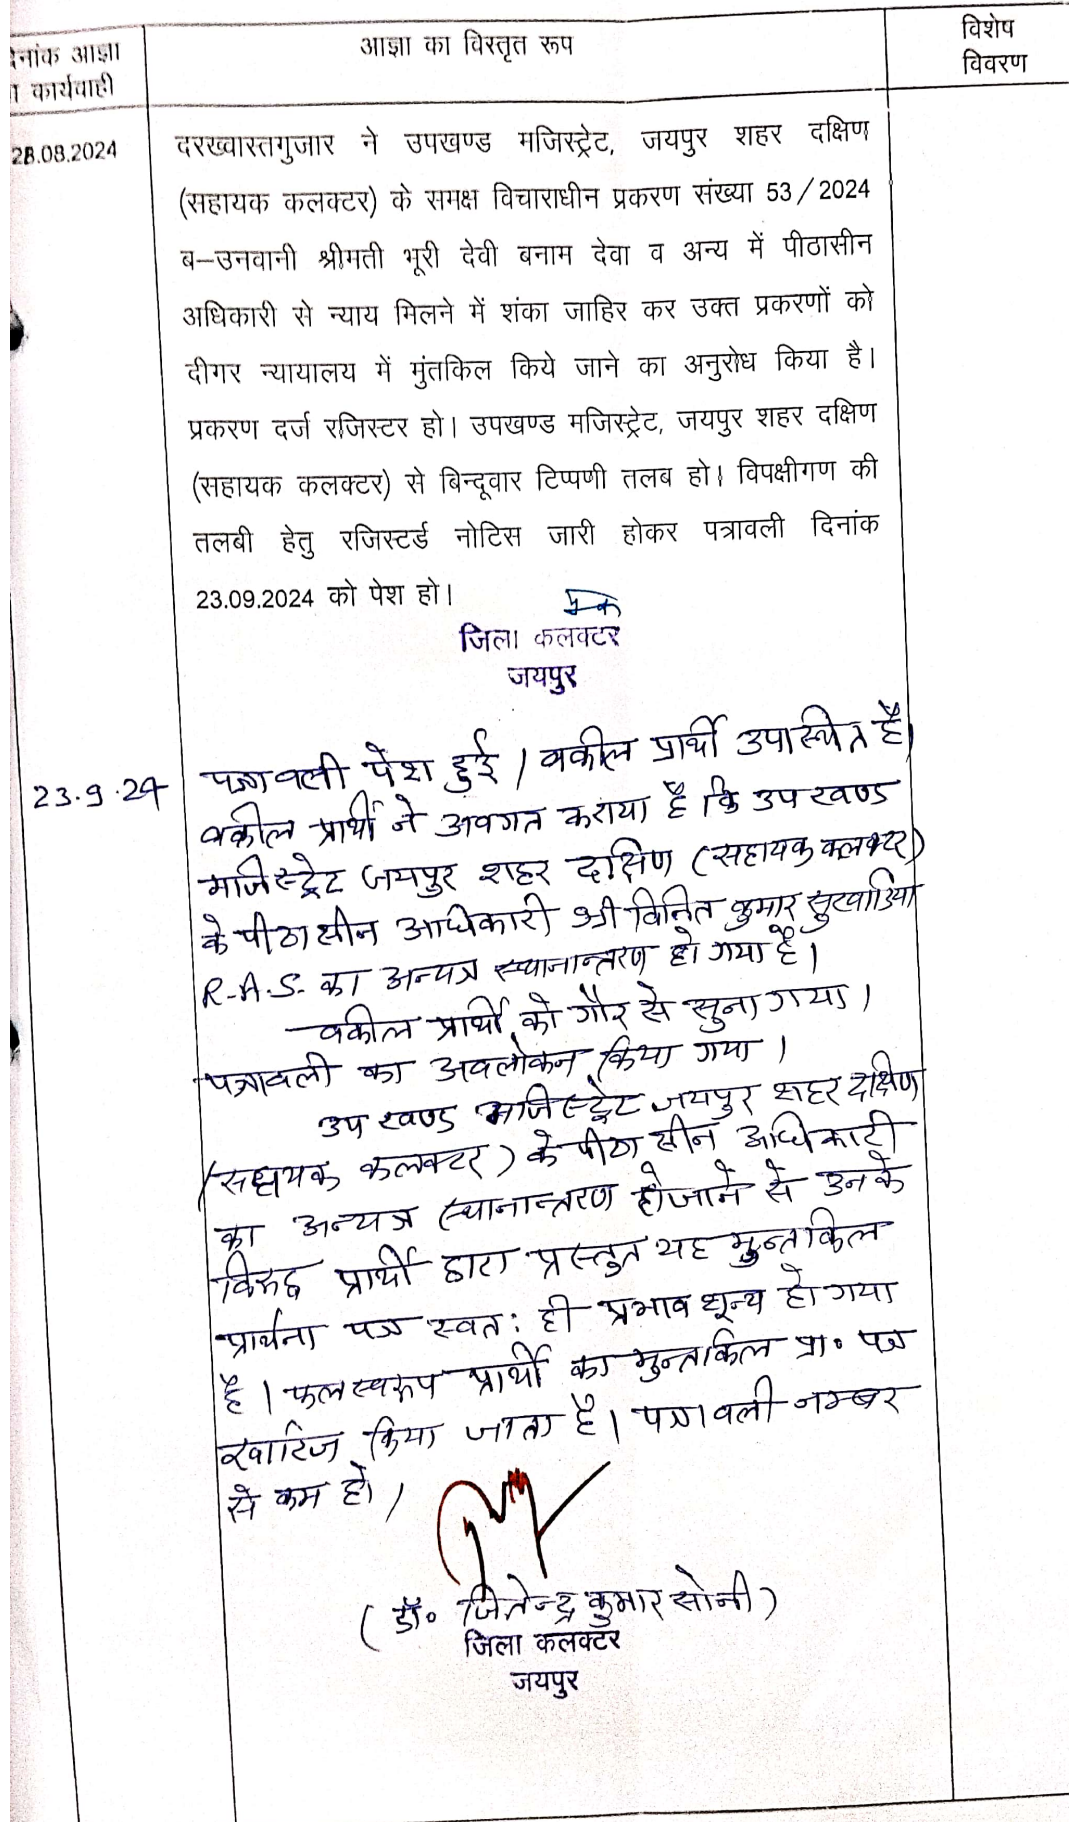 दिनांक आज्ञा
या कार्यवाही
आज्ञा का विस्तृत रूप
विशेष
विवरण
28.08.2024
दरख्वास्तगुजार ने उपखण्ड मजिस्ट्रेट, जयपुर शहर दक्षिण
(सहायक कलक्टर) के समक्ष विचाराधीन प्रकरण संख्या 53/2024
ब–उनवानी श्रीमती भूरी देवी बनाम देवा व अन्य में पीठासीन
अधिकारी से न्याय मिलने में शंका जाहिर कर उक्त प्रकरणों को
दीगर न्यायालय में मुंतकिल किये जाने का अनुरोध किया है।
प्रकरण दर्ज रजिस्टर हो। उपखण्ड मजिस्ट्रेट, जयपुर शहर दक्षिण
(सहायक कलक्टर) से बिन्दूवार टिप्पणी तलब हो। विपक्षीगण की
तलबी हेतु रजिस्टर्ड नोटिस जारी होकर पत्रावली दिनांक
23.09.2024 को पेश हो।
जिला कलक्टर
जयपुर
23.9.24
पत्रावली पेश हुई। वकील प्रार्थी उपस्थित है।
वकील प्रार्थी ने अवगत कराया है कि उप खण्ड
मजिस्ट्रेट जयपुर शहर दक्षिण (सहायक कलक्टर)
के पीठासीन अधिकारी श्री विनित कुमार सुखाडिया
R.A.S. का अन्यत्र स्थानान्तरण हो गया है।
वकील प्रार्थी को गौर से सुना गया।
पत्रावली का अवलोकन किया गया।
उप खण्ड मजिस्ट्रेट जयपुर शहर दक्षिण
(सहायक कलक्टर) के पीठासीन अधिकारी
का अन्यत्र स्थानान्तरण हो जाने से उनके
विरुद्ध प्रार्थी द्वारा प्रस्तुत यह मुन्तकिल
प्रार्थना पत्र स्वत: ही प्रभाव शून्य हो गया
है। फलस्वरूप प्रार्थी का मुन्तकिल प्रा० पत्र
खारिज किया जाता है। पत्रावली नम्बर
से कम हो।
(डॉ० जितेन्द्र कुमार सोनी)
जिला कलक्टर
जयपुर